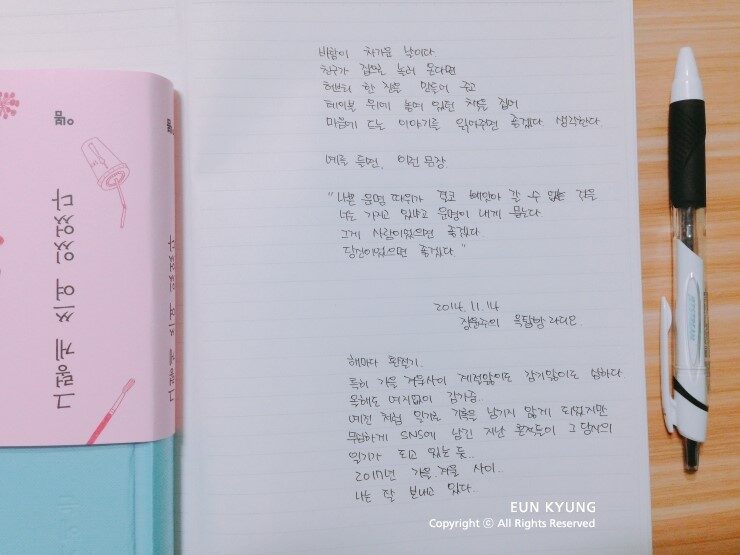 그렇게 쓰여 있었다
바람이 차가운 날이다
친구가 집으로 놀러 온다면
허브티 한 잔을 만들어 주고
테이블 위에 놓여 있던 책을 집어
마음에 드는 이야기를 읽어주면 좋겠다 생각한다
예를 들면, 이런 문장
"나쁜 운명 따위가 결코 빼앗아 갈 수 없는 것을
너는 가지고 있냐고 운명이 내게 묻는다
그게 사람이었으면 좋겠다.
당신이었으면 좋겠다."
2014.11.14
장윤주의 옥탑방 라디오.
해마다 환절기.
특히 가을 겨울사이 계절앓이도 감기앓이도 심하다.
올해도 여지없이 감기중..
예전 처럼 일기로 기록을 남기지 않게 되었지만
무심하게 SNS에 남긴 지난 흔적들이 그 당시의
일기가 되고 있는 듯..
2017년 가을.겨울 사이..
나는 잘 보내고 있다..
JETSTREAM
EUN KYUNG
Copyright ⓒ All Rights Reserved